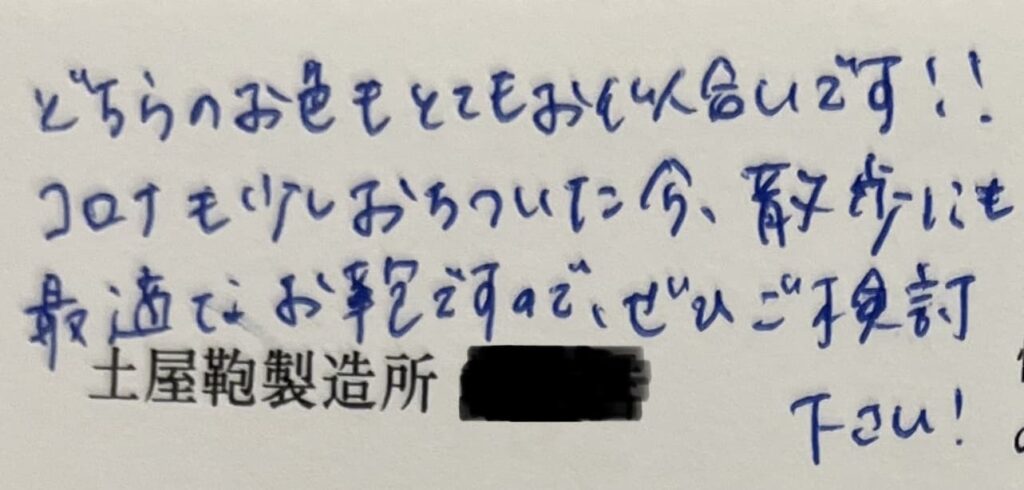 どちらのお色もとてもお似合いです!!
コロナも少しおちついた今、散歩にも
最適なお鞄ですので、ぜひご検討
土屋鞄製造所
下さい!